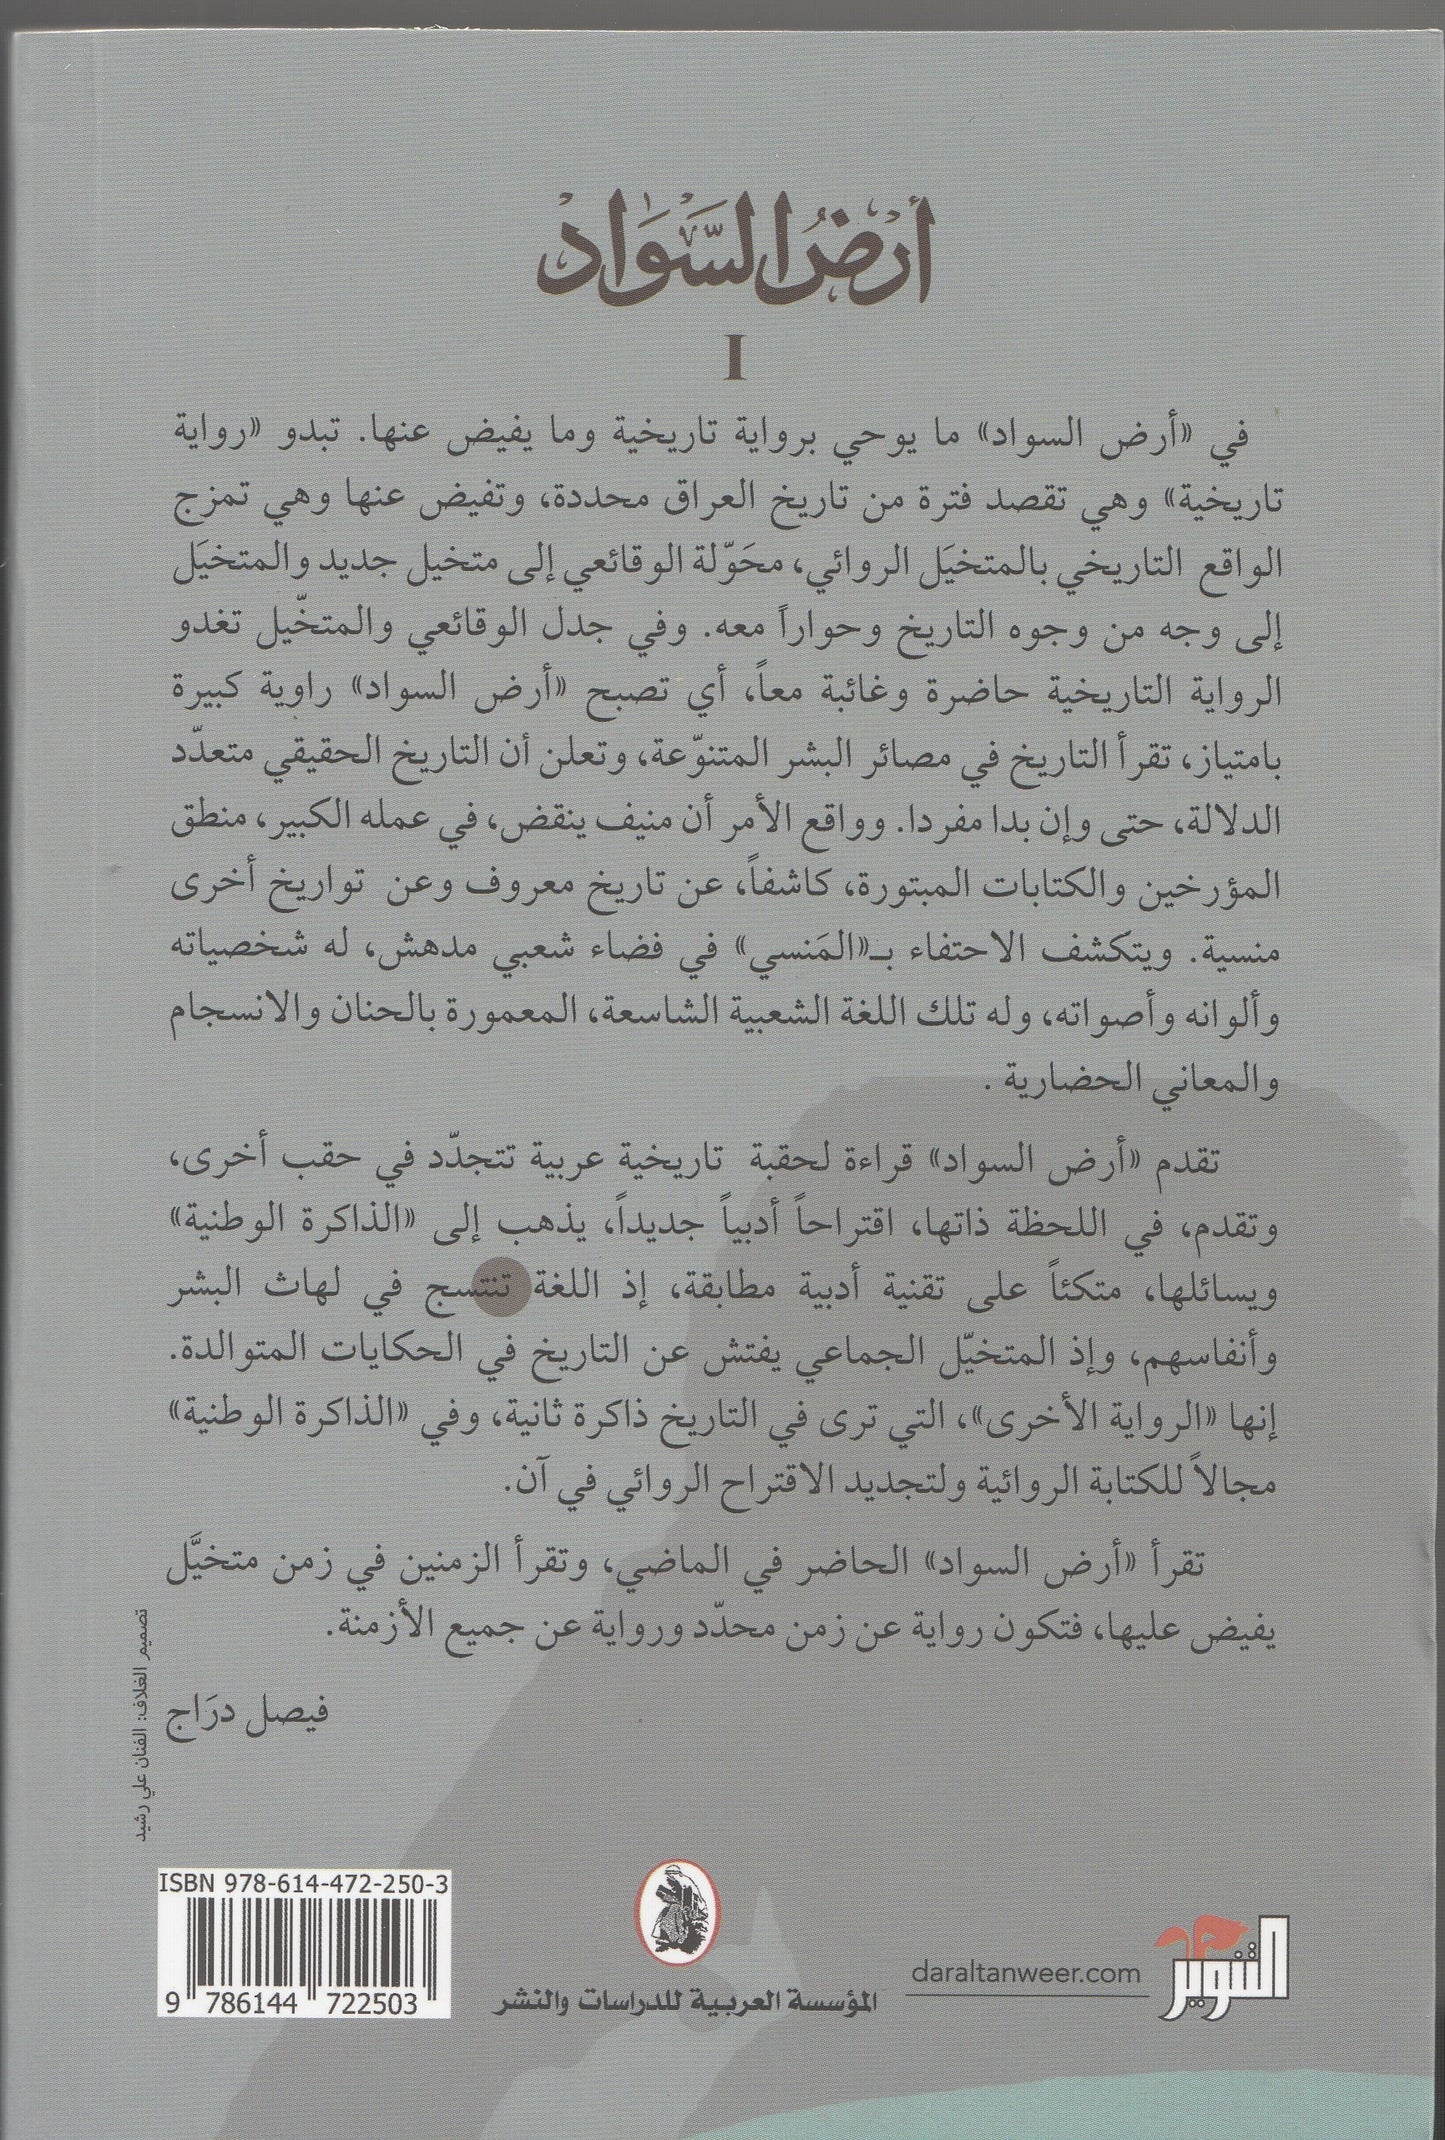 أرض السواد
I
في «أرض السواد» ما يوحي برواية تاريخية وما يفيض عنها. تبدو «رواية
تاريخية» وهي تقصد فترة من تاريخ العراق محددة، وتفيض عنها وهي تمزج
الواقع التاريخي بالمتخيَل الروائي، محَوّلة الوقائعي إلى متخيل جديد والمتخيَل
إلى وجه من وجوه التاريخ وحواراً معه. وفي جدل الوقائعي والمتخّيل تغدو
الرواية التاريخية حاضرة وغائبة معاً، أي تصبح «أرض السواد» راوية كبيرة
بامتياز، تقرأ التاريخ في مصائر البشر المتنوّعة، وتعلن أن التاريخ الحقيقي متعدّد
الدلالة، حتى وإن بدا مفردا. وواقع الأمر أن منيف ينقض، في عمله الكبير، منطق
المؤرخين والكتابات المبتورة، كاشفاً، عن تاريخ معروف وعن تواريخ أخرى
منسية. ويتكشف الاحتفاء بـ«المَنسي» في فضاء شعبي مدهش، له شخصياته
وألوانه وأصواته، وله تلك اللغة الشعبية الشاسعة، المعمورة بالحنان والانسجام
والمعاني الحضارية .
تقدم «أرض السواد» قراءة لحقبة تاريخية عربية تتجدّد في حقب أخرى،
وتقدم، في اللحظة ذاتها، اقتراحاً أدبياً جديداً، يذهب إلى «الذاكرة الوطنية»
ويسائلها، متكئاً على تقنية أدبية مطابقة، إذ اللغة تنتسج في لهاث البشر
وأنفاسهم، وإذ المتخيّل الجماعي يفتش عن التاريخ في الحكايات المتوالدة.
إنها «الرواية الأخرى»، التي ترى في التاريخ ذاكرة ثانية، وفي «الذاكرة الوطنية»
مجالاً للكتابة الروائية ولتجديد الاقتراح الروائي في آن.
تقرأ «أرض السواد» الحاضر في الماضي، وتقرأ الزمنين في زمن متخيَّل
يفيض عليها، فتكون رواية عن زمن محدّد ورواية عن جميع الأزمنة.
فيصل درَاج
تصميم الغلاف: الفنان علي رشيد
ISBN 978-614-472-250-3
9 786144 722503
المؤسسة العربية للدراسات والنشر
daraltanweer.com
التنوير